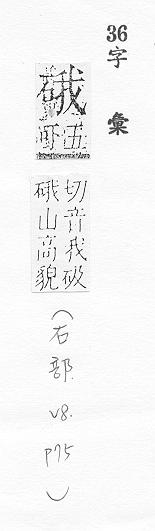 36字彙
硪
五
切音我砐
硪山高貌
(石部.
V8.
P75)